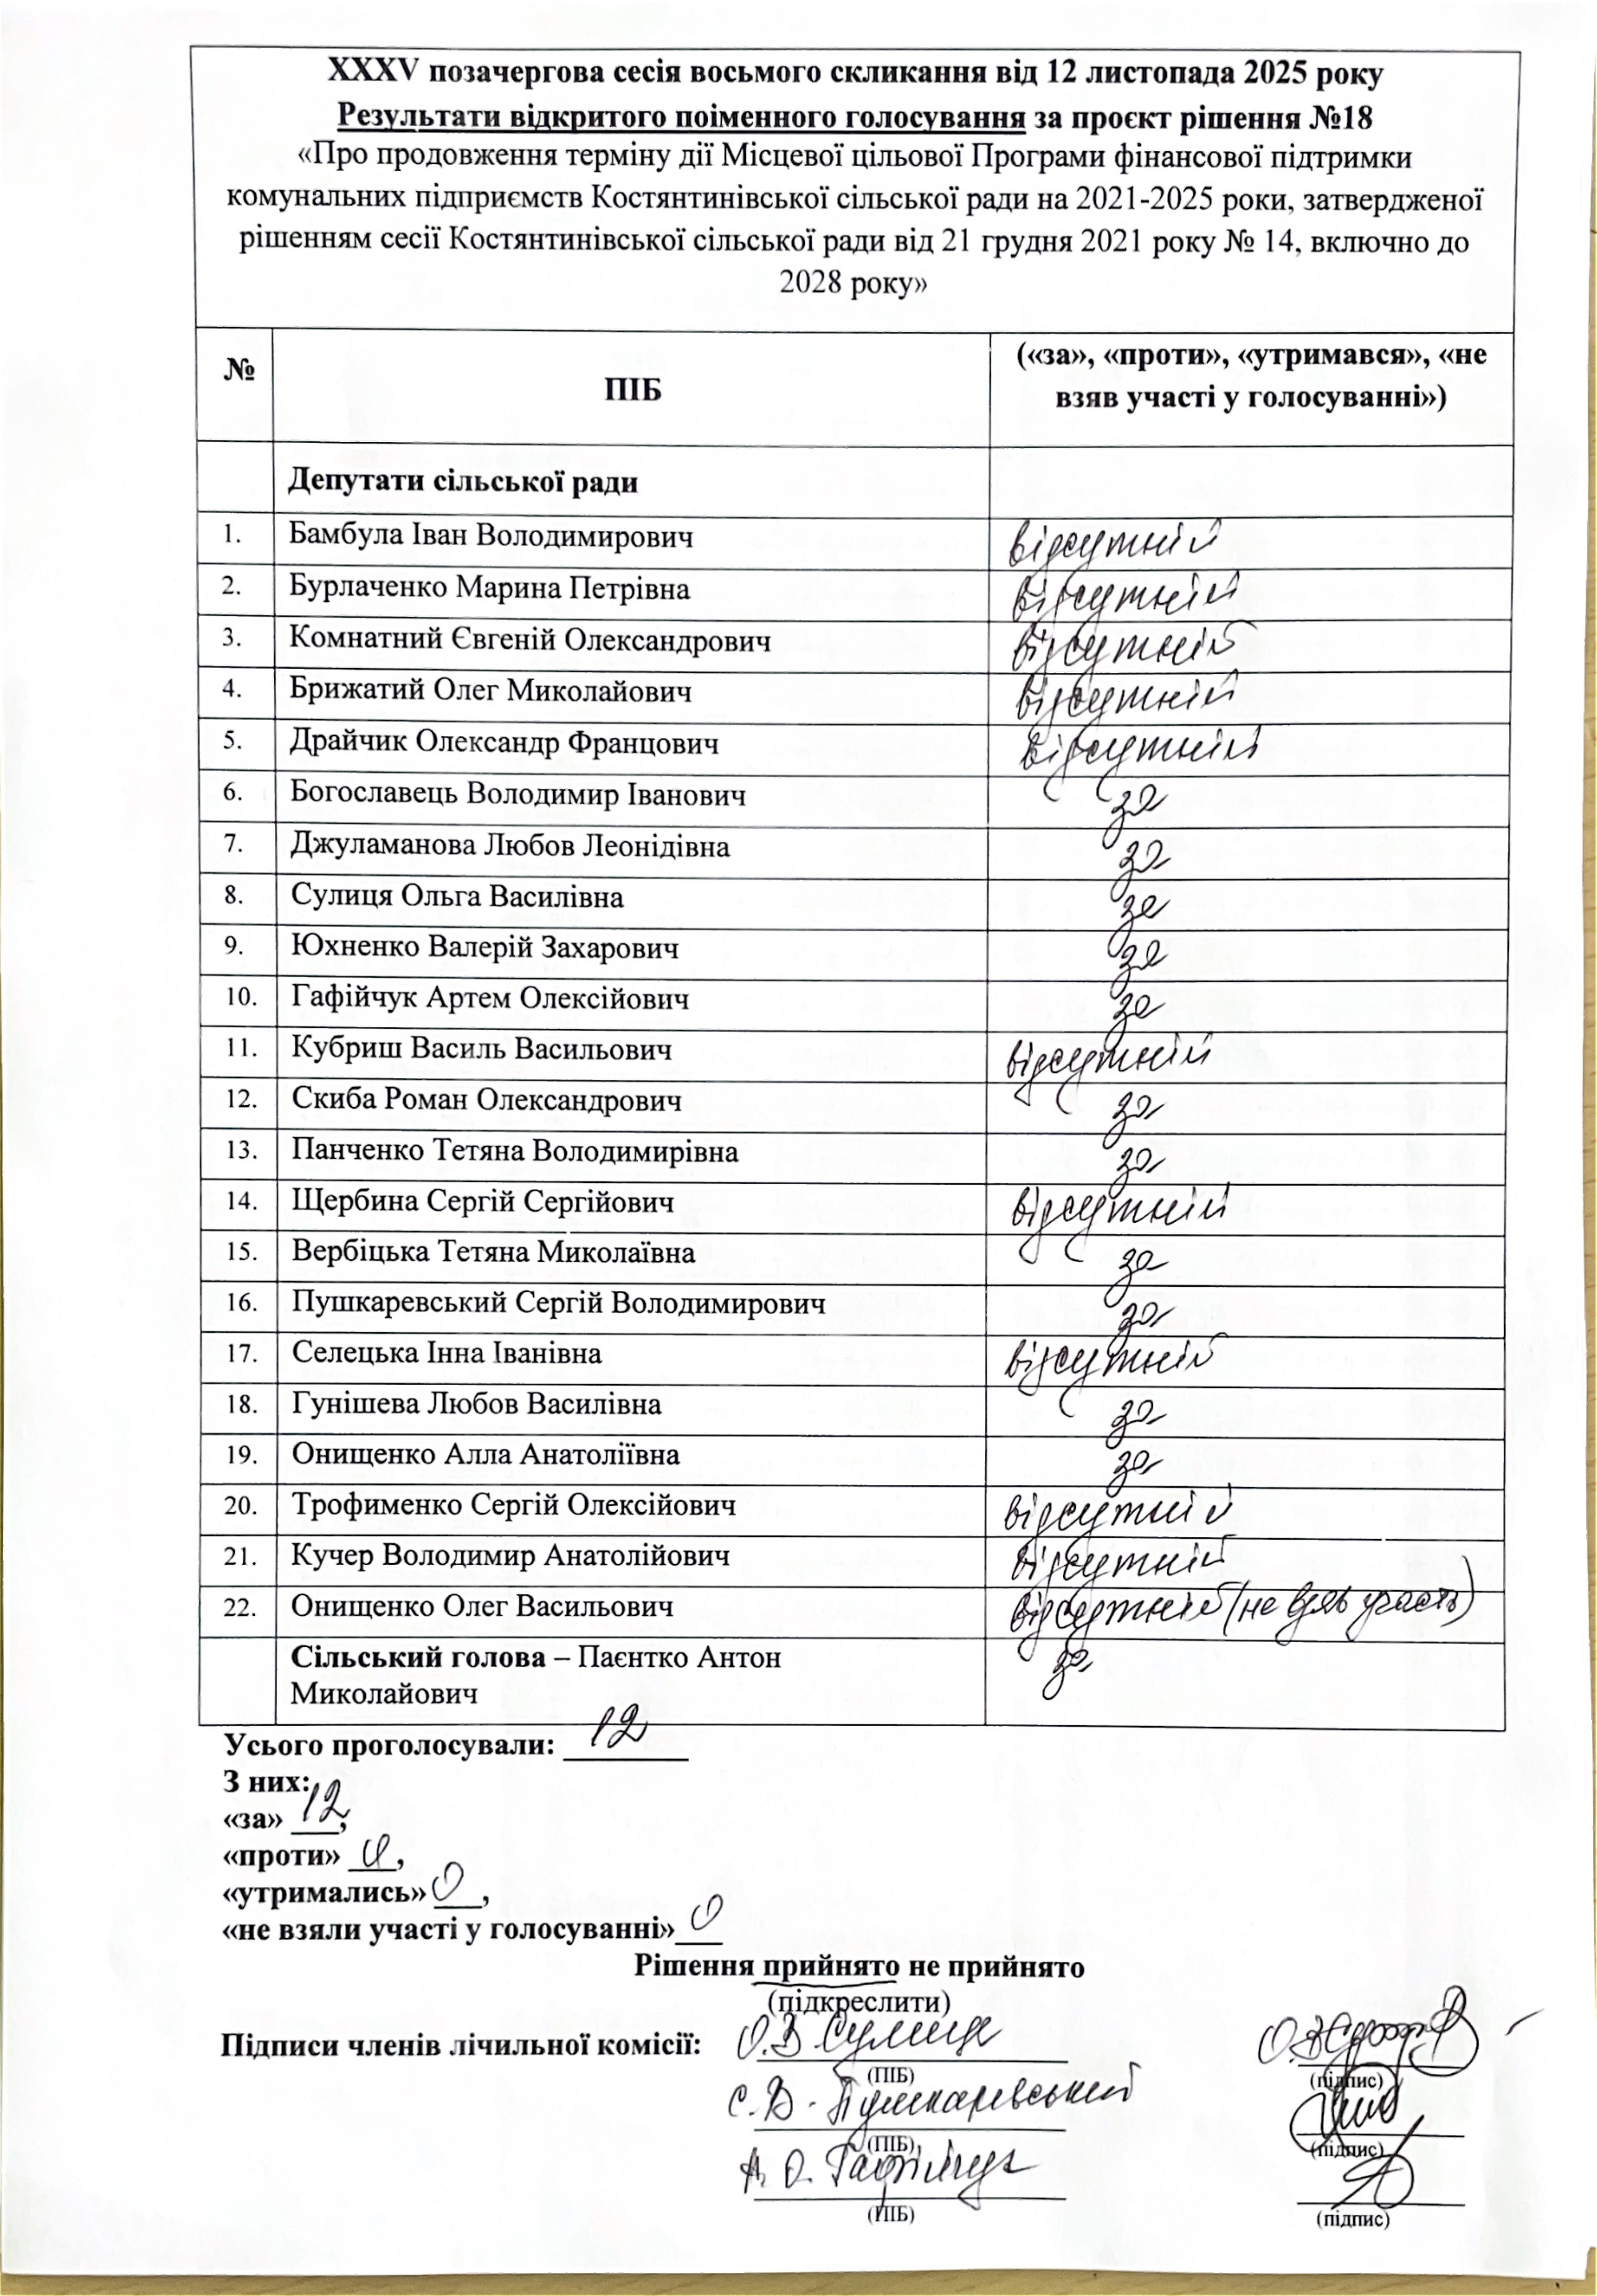 XXXV позачергова сесія восьмого скликання від 12 листопада 2025 року
Результати відкритого поіменного голосування за проєкт рішення №18
«Про продовження терміну дії Місцевої цільової Програми фінансової підтримки
комунальних підприємств Костянтинівської сільської ради на 2021-2025 роки, затвердженої
рішенням сесії Костянтинівської сільської ради від 21 грудня 2021 року № 14, включно до
2028 року»
№ ПІБ («за», «проти», «утримався», «не
взяв участі у голосуванні»)
Депутати сільської ради
1. Бамбула Іван Володимирович відсутній
2. Бурлаченко Марина Петрівна відсутній
3. Комнатний Євгеній Олександрович відсутній
4. Брижатий Олег Миколайович відсутній
5. Драйчик Олександр Францович відсутній
6. Богославець Володимир Іванович за
7. Джуламанова Любов Леонідівна за
8. Сулиця Ольга Василівна за
9. Юхненко Валерій Захарович за
10. Гафійчук Артем Олексійович за
11. Кубриш Василь Васильович відсутній
12. Скиба Роман Олександрович за
13. Панченко Тетяна Володимирівна за
14. Щербина Сергій Сергійович відсутній
15. Вербіцька Тетяна Миколаївна за
16. Пушкаревський Сергій Володимирович за
17. Селецька Інна Іванівна відсутній
18. Гунішева Любов Василівна за
19. Онищенко Алла Анатоліївна за
20. Трофименко Сергій Олексійович відсутній
21. Кучер Володимир Анатолійович відсутній
22. Онищенко Олег Васильович відсутній (не взяв участь)
Сільський голова – Паєнтко Антон за
Миколайович
Усього проголосували: 12
З них:
«за» 12,
«проти» 0,
«утримались» 0,
«не взяли участі у голосуванні» 0
Рішення прийнято не прийнято
(підкреслити)
Підписи членів лічильної комісії: О.В Сулиця
(ПІБ) (підпис)
С.В. Пушкаревський
(ПІБ) (підпис)
А. О. Гафійчук
(ПІБ) (підпис)